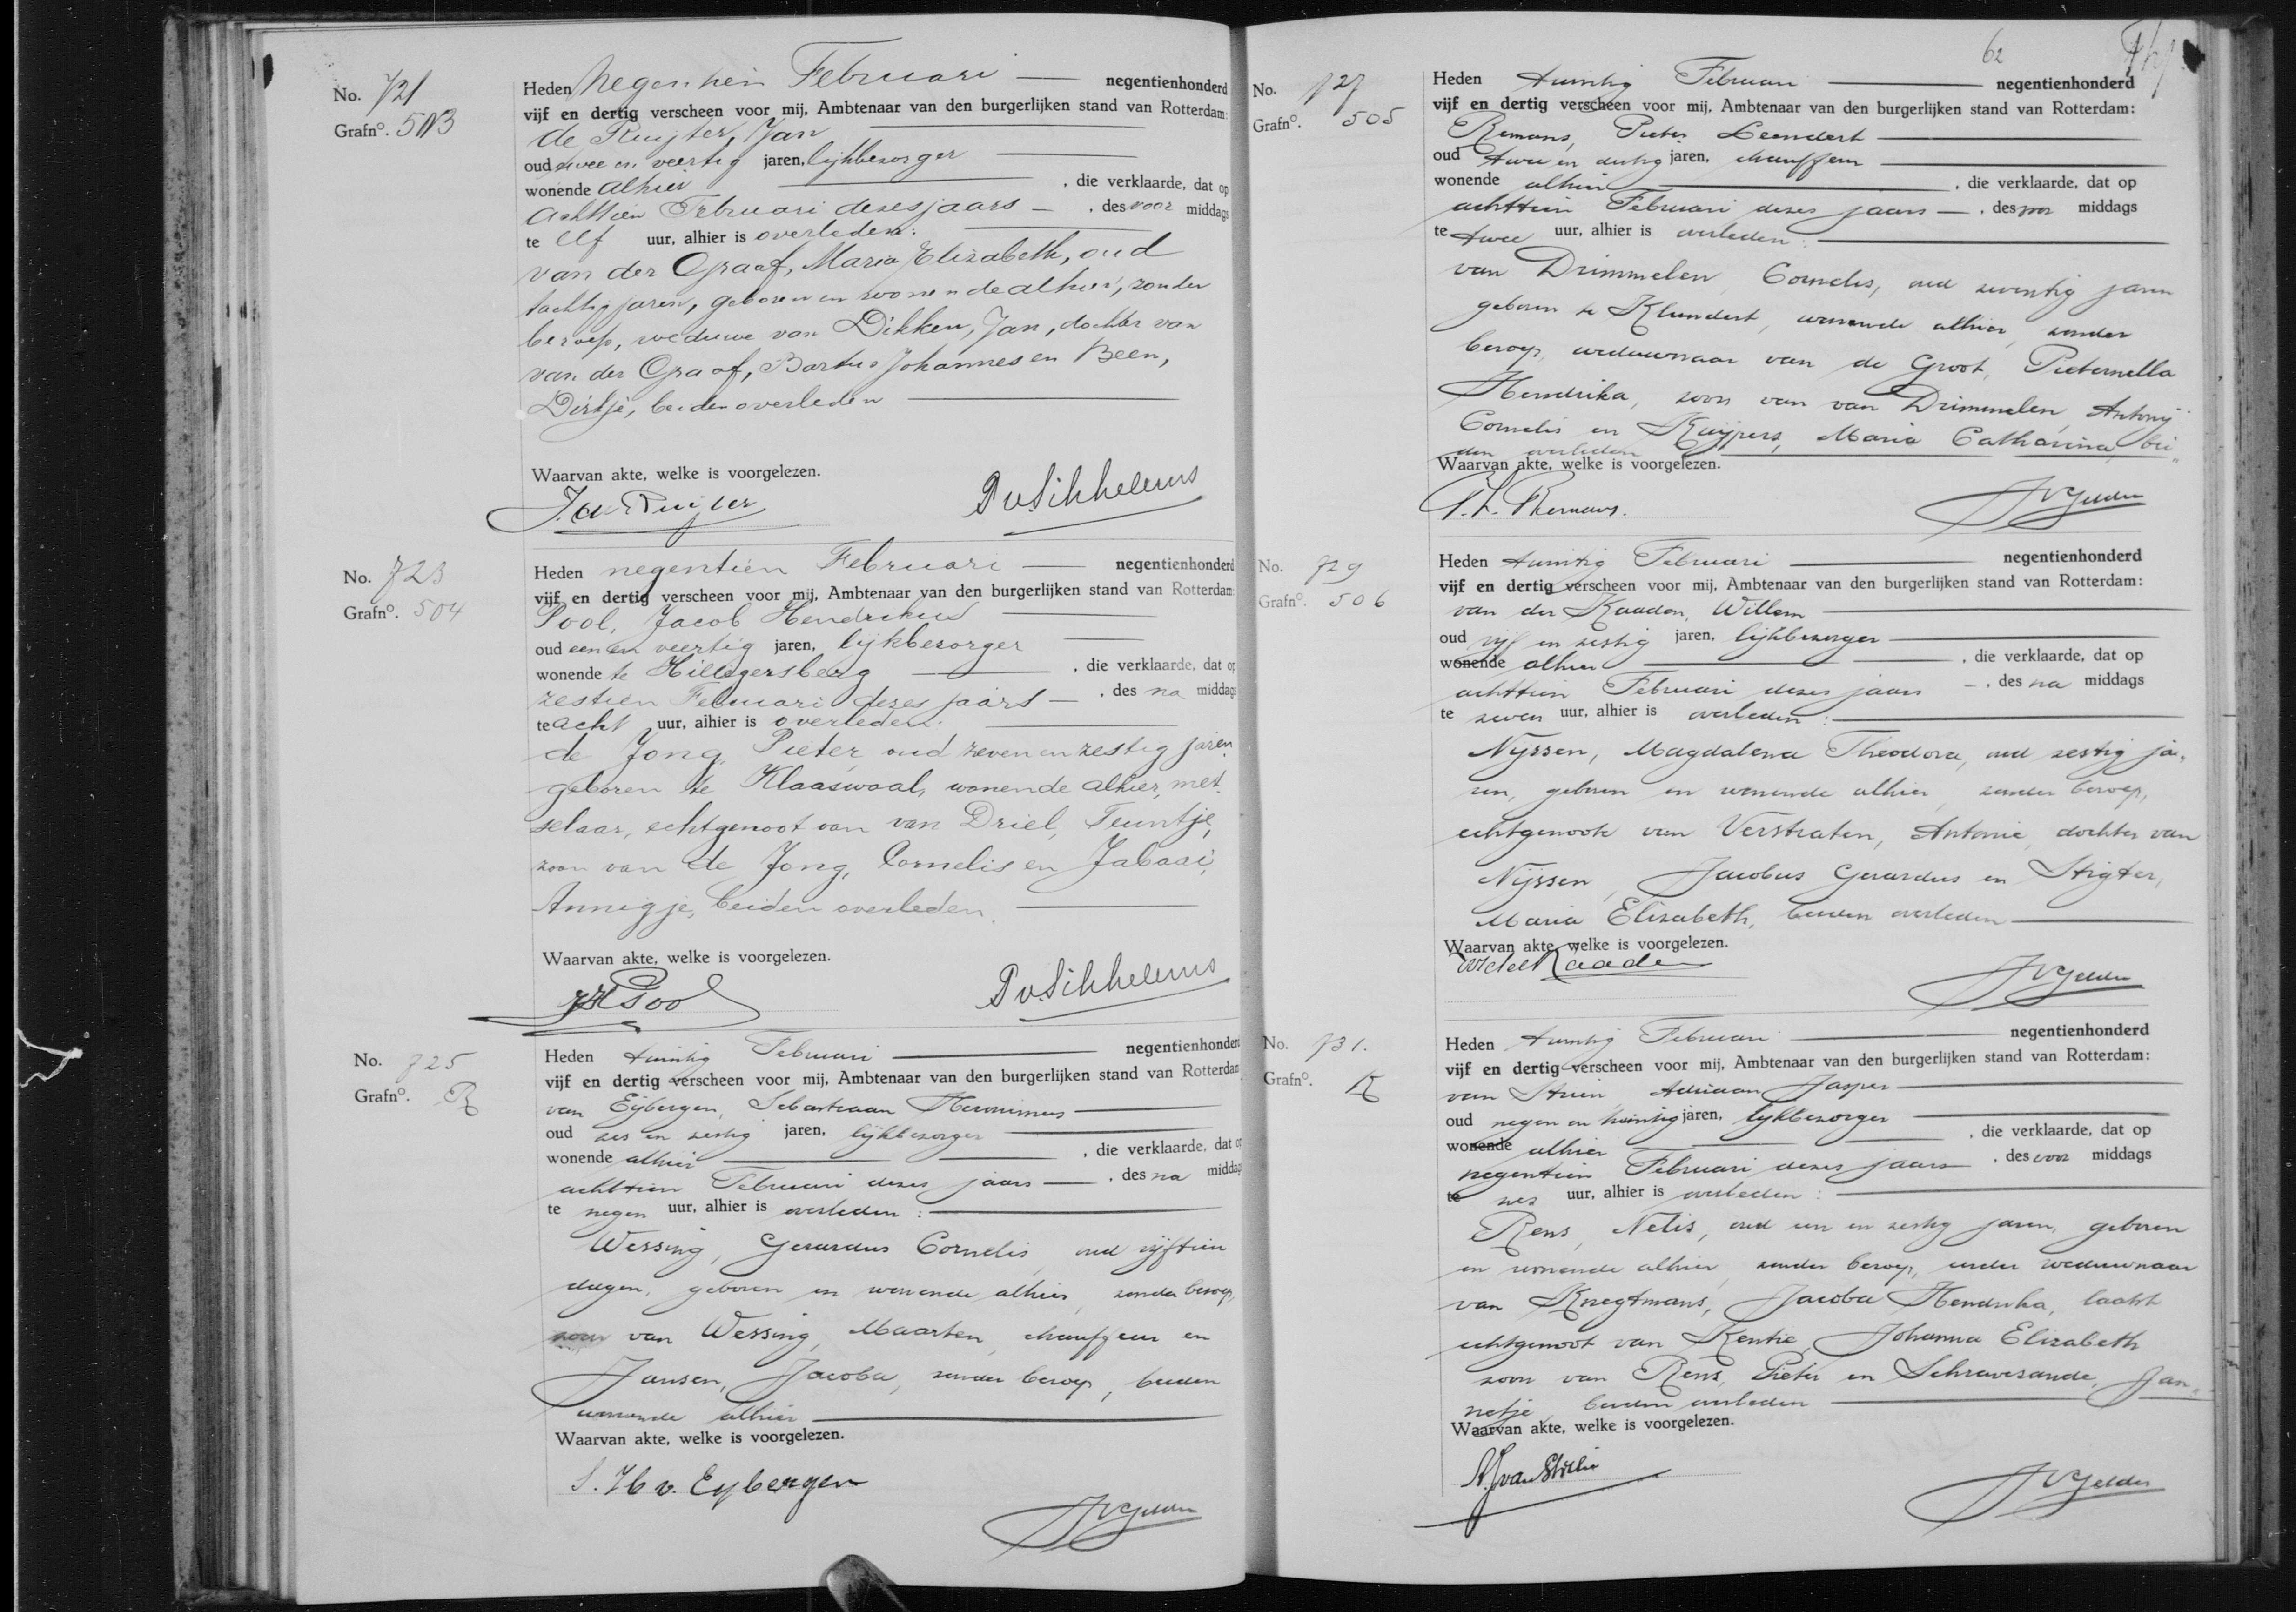 No. 721
Grafno. 503
Heden negentien Februari — negentienhonderd
vijf en dertig verscheen voor mij, Ambtenaar van den burgerlijken stand van Rotterdam:
de Ruyter, Jan
oud twee en veertig jaren, lijkbezorger
wonende alhier, die verklaarde, dat op
achttien Februari dezes jaars —, des voor middags
te elf uur, alhier is overleden:
van der Graaf, Maria Elizabeth, oud
tachtig jaren, geboren en wonende alhier, zonder
beroep, weduwe van Dikken, Jan, dochter van
van der Graaf, Bartus Johannes en Been,
Dirkje, beiden overleden
Waarvan akte, welke is voorgelezen.
J. de Ruijter
No. 723
Grafno. 504
Heden negentien Februari — negentienhonderd
vijf en dertig verscheen voor mij, Ambtenaar van den burgerlijken stand van Rotterdam:
Pool, Jacob Hendrikus
oud een en veertig jaren, lijkbezorger
wonende te Hillegersberg, die verklaarde, dat op
zestien Februari dezes jaars —, des na middags
te acht uur, alhier is overleden:
de Jong, Pieter, oud zeven en zestig jaren
geboren te Klaaswaal, wonende alhier, met-
selaar, echtgenoot van van Driel, Teuntje,
zoon van de Jong, Cornelis en Jabaai,
Annigje, beiden overleden.
Waarvan akte, welke is voorgelezen.
JH Pool
No. 725
Grafno. R
Heden twintig Februari — negentienhonderd
vijf en dertig verscheen voor mij, Ambtenaar van den burgerlijken stand van Rotterdam
van Eijbergen, Sebastiaan Hieronimus
oud zes en zestig jaren, lijkbezorger
wonende alhier, die verklaarde, dat op
achttien Februari dezes jaars —, des na middags
te negen uur, alhier is overleden:
Wessing, Gerardus Cornelis, oud vijftien
dagen, geboren en wonende alhier, zonder beroep,
zoon van Wessing, Maarten, chauffeur en
Jansen, Jacoba, zonder beroep, beiden
wonende alhier
Waarvan akte, welke is voorgelezen.
S. H. v. Eybergen
JVGelder
62
No. 727
Grafno. 505
Heden twintig Februari — negentienhonderd
vijf en dertig verscheen voor mij, Ambtenaar van den burgerlijken stand van Rotterdam:
Remans, Pieter Leendert
oud twee en dertig jaren, chauffeur
wonende alhier, die verklaarde, dat op
achttien Februari dezes jaars —, des voor middags
te twee uur, alhier is overleden:
van Drimmelen, Cornelis, oud zeventig jaren
geboren te Klundert, wonende alhier, zonder
beroep, weduwnaar van de Groot, Pieternella
Hendrika, zoon van van Drimmelen, Antonij
Cornelis en Kuijpers, Maria Catharina, bei-
den overleden
Waarvan akte, welke is voorgelezen.
JVGelder
No. 729
Grafno. 506
Heden twintig Februari — negentienhonderd
vijf en dertig verscheen voor mij, Ambtenaar van den burgerlijken stand van Rotterdam:
van der Kaaden, Willem
oud vijf en zestig jaren, lijkbezorger
wonende alhier, die verklaarde, dat op
achttien Februari dezes jaars —, des na middags
te zeven uur, alhier is overleden:
Nijssen, Magdalena Theodora, oud zestig ja-
ren, geboren en wonende alhier, zonder beroep,
echtgenoote van Verstraten, Antonie, dochter van
Nijssen, Jacobus Gerardus en Stigter,
Maria Elizabeth, beiden overleden
Waarvan akte, welke is voorgelezen.
W vd Kaaden
JVGelder
No. 731.
Grafno. R
Heden twintig Februari — negentienhonderd
vijf en dertig verscheen voor mij, Ambtenaar van den burgerlijken stand van Rotterdam:
van Strien, Adriaan Jasper
oud negen en twintig jaren, lijkbezorger
wonende alhier, die verklaarde, dat op
negentien Februari dezes jaars, des voor middags
te zes uur, alhier is overleden:
Rens, Nelis, oud een en zestig jaren, geboren
en wonende alhier, zonder beroep, eerder weduwnaar
van Knegtmans, Jacoba Hendrika, laatst
echtgenoot van Kentie, Johanna Elizabeth
zoon van Rens, Pieter en Schravesande, Jan-
netje, beiden overleden
Waarvan akte, welke is voorgelezen.
A.J van Strien
JVGelder